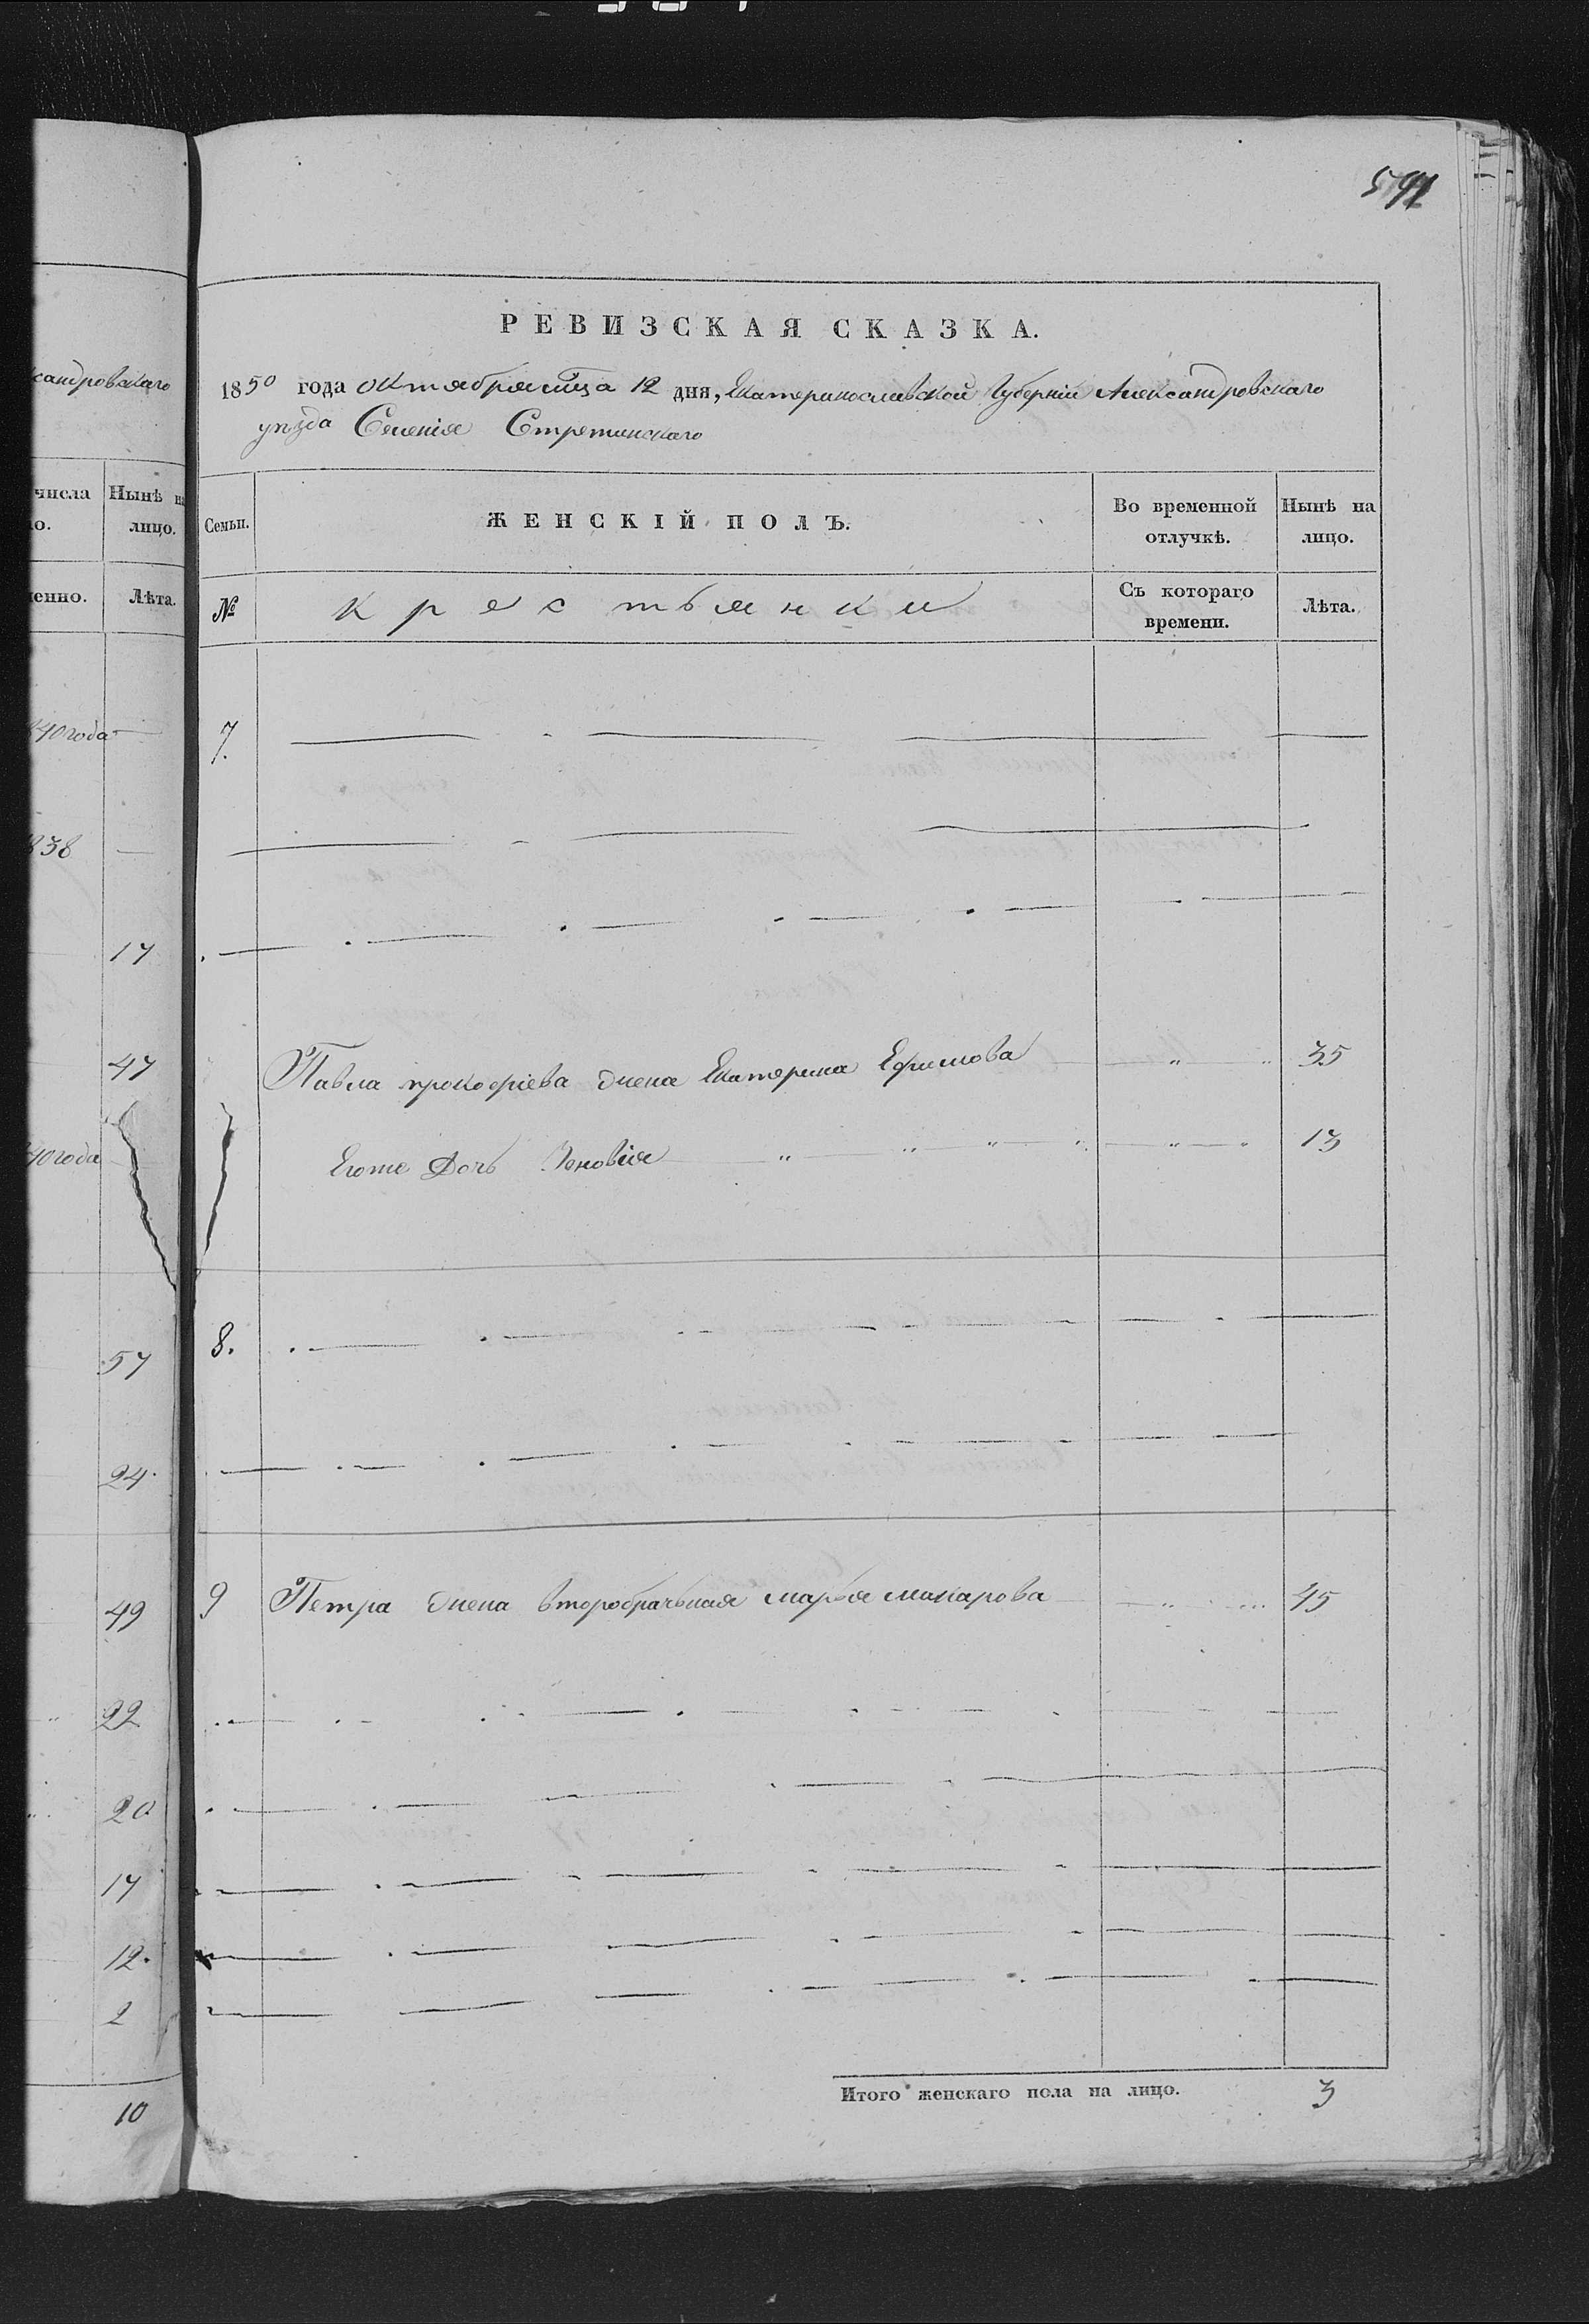 РЕВИЗСКАЯ СКАЗКА.
1850 года октября мѣсяца 12 дня, Екатеринославской Губерніи Александровскаго
уѣзда Селенія Стретинскаго
Семьи.
ЖЕНСКІЙ ПОЛЪ.
Во временной отлучкѣ.
Нынѣ на лицо.
№
крестьянки
Съ котораго времени.
Лѣта.
7.
Павла прокофіева жена Екатерина Ефимова 35
Егоже Дочь Зеновія 13
8.
9 Петра жена второбрачьная марья макарова 45
Итого женскаго пола на лицо. 3
сандровскаго
числа
о.
Нынѣ на
лицо.
енно.
Лѣта.
40 года
838
17
47
40 года
57
24.
49
22
20
17
12.
2
10